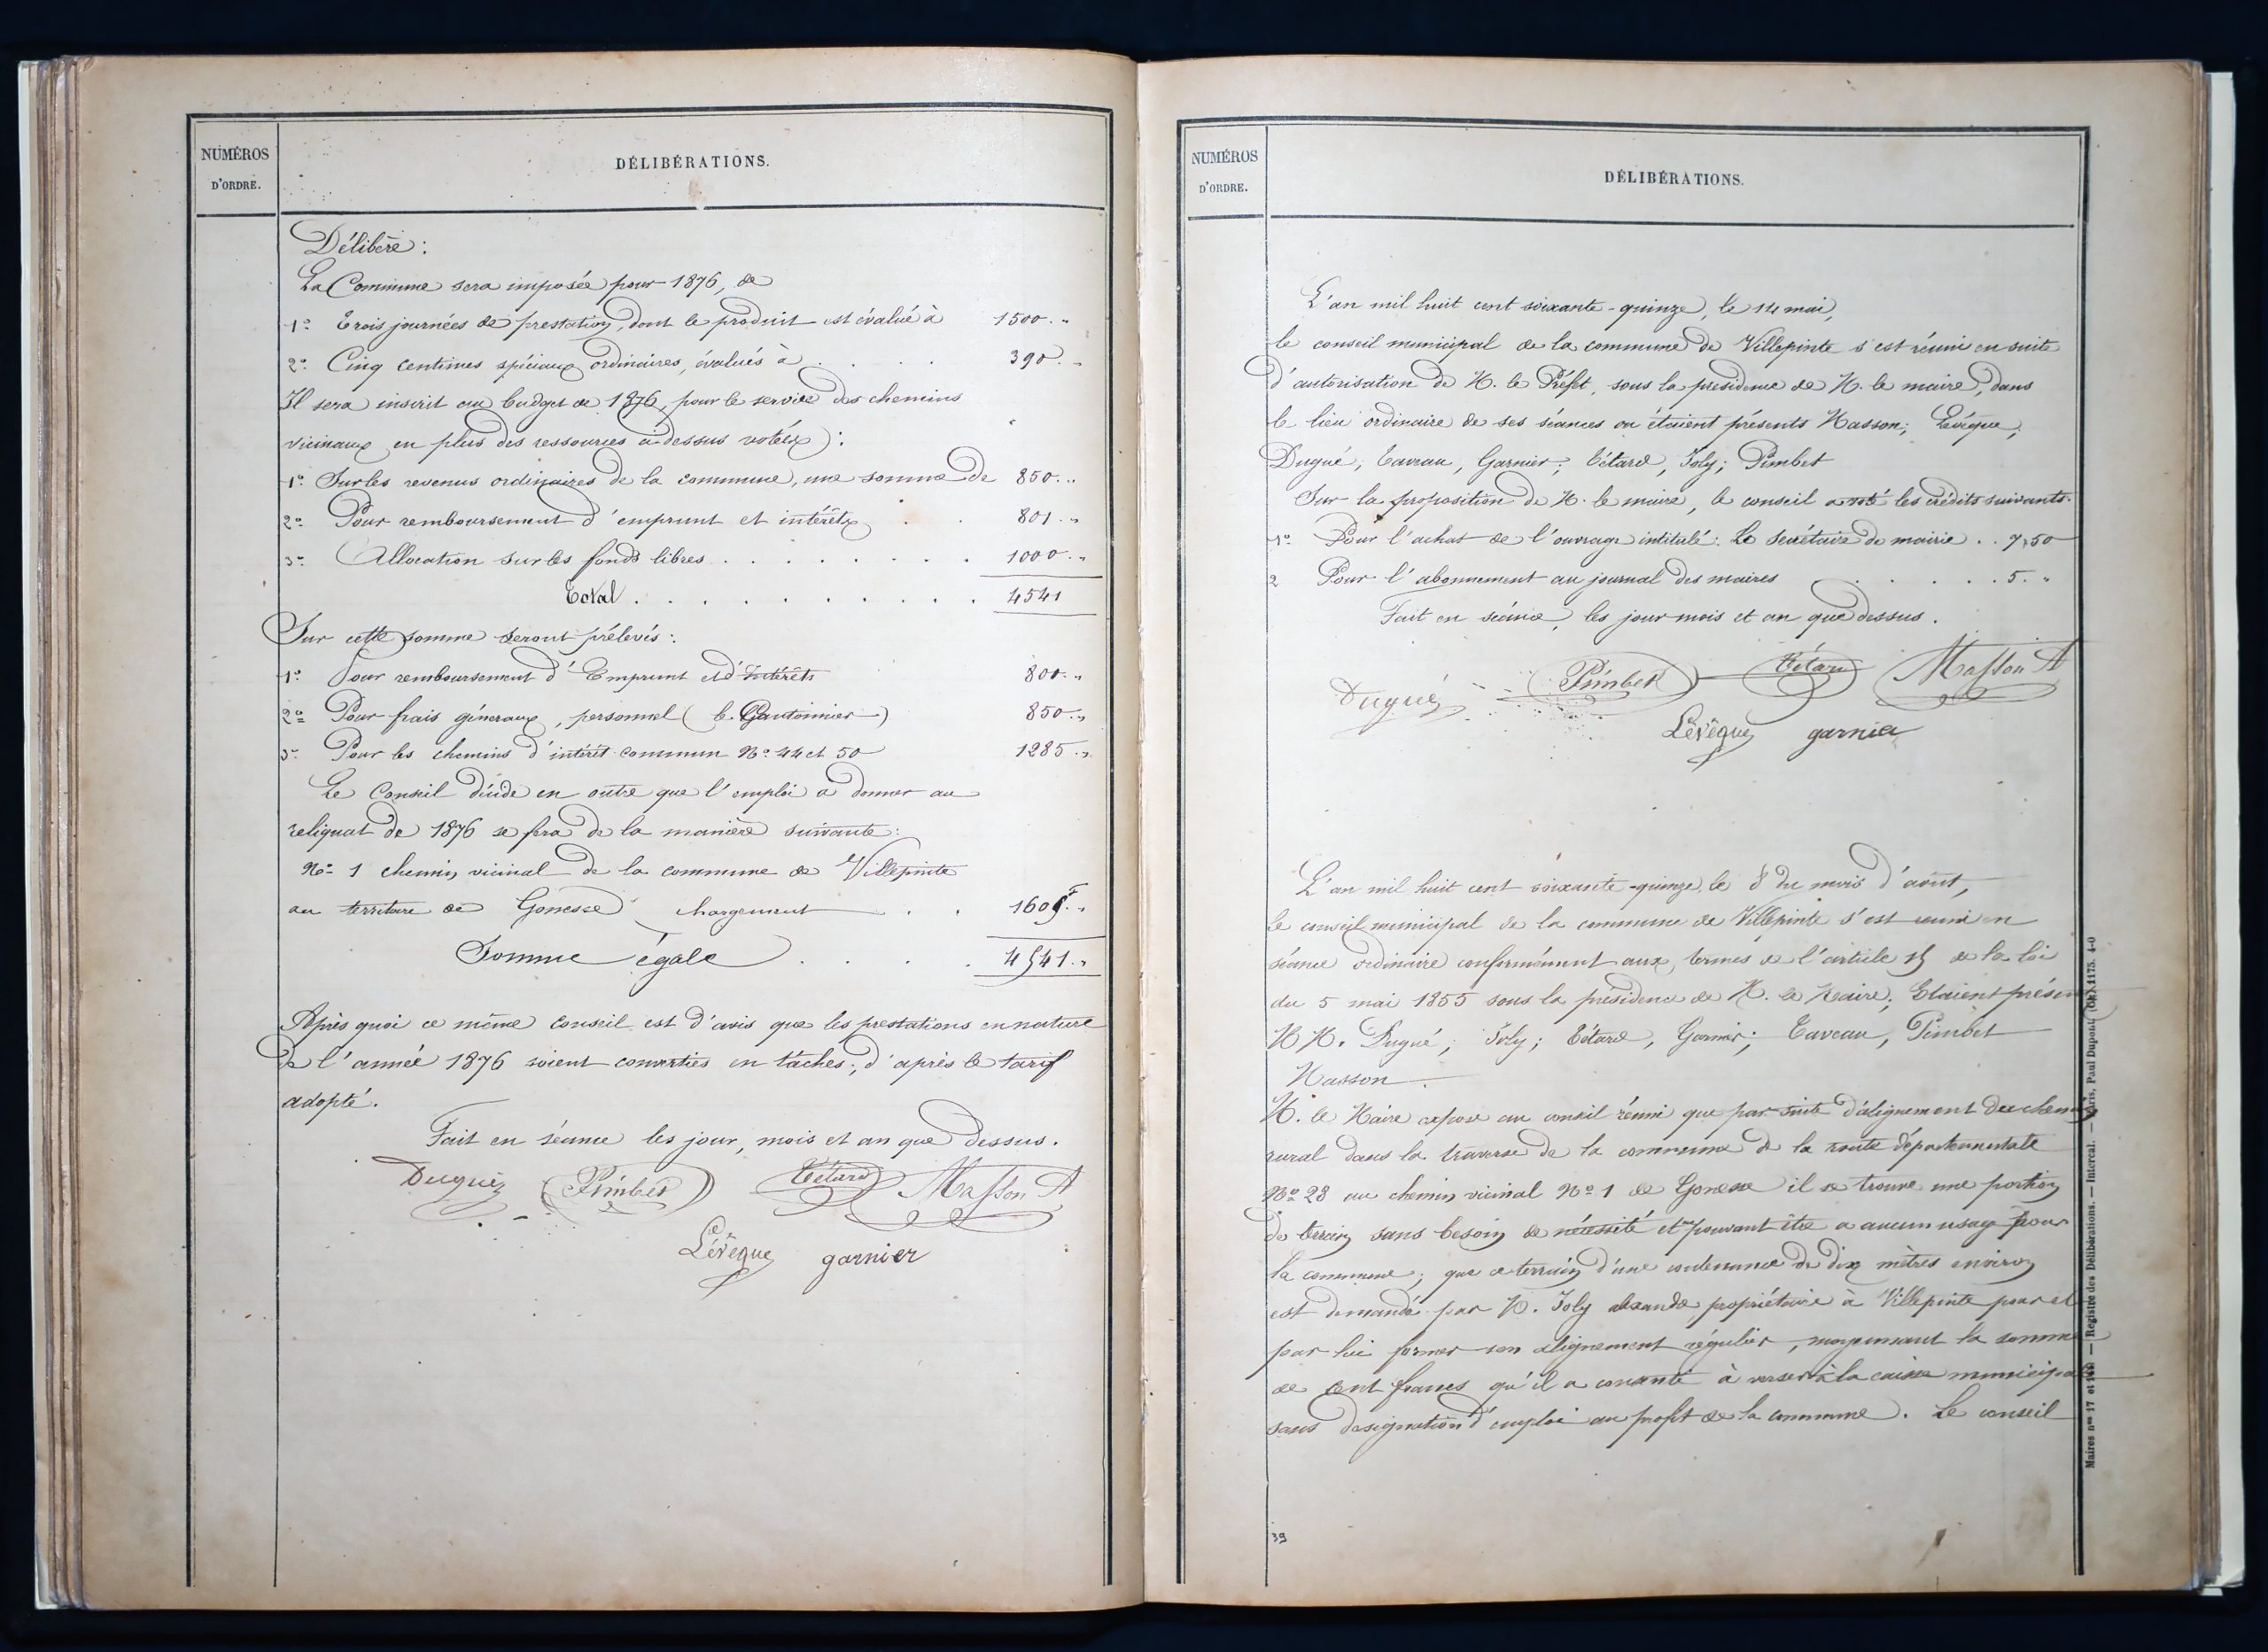 NUMÉROS
D'ORDRE.
DÉLIBÉRATIONS.
Délibère :
La Commune sera imposée pour 1876, de
1º Trois journées de prestation, dont le produit est évalué à 1500 . "
2º Cinq centimes spéciaux ordinaires, évalués à . . . 390 . "
Il sera inscrit au budget de 1876, pour le service des chemins
vicinaux en plus des ressources ci-dessus votées) :
1º Sur les revenus ordinaires de la commune, une somme de 850 . "
2º Pour remboursement d'emprunt et intérêts . . 801 . "
3º Allocation sur les fonds libres . . . . . . . . 1000 . "
Total . . . . . . . . . . . 4541
Sur cette somme seront prélevés :
1º Pour remboursement d'Emprunt et d'Intérêts 801 . "
2º Pour frais géneraux, personnel (le Cantonnier) 850 . "
3º Pour les chemins d'intérêt commun Nº 44 et 50 1285 . "
Le Conseil décide en outre que l'emploi a donner au
reliquat de 1876 se fera de la manière suivante :
Nº 1 chemin vicinal de la commune de Villepinte
au territoire de Gonesse chargement . . 1605 . "
Somme égale . . . . 4541 . "
Après quoi ce même conseil est d'avis que les prestations en nature
de l'année 1876 soient converties en tâches ; d'après le tarif
adopté.
Fait en séance les jour, mois et an que dessus.
Dugué Pimbet Tétard Masson A
Lévêque garnier
NUMÉROS
D'ORDRE.
DÉLIBÉRATIONS.
L'an mil huit cent soixante-quinze, le 14 mai,
le conseil municipal de la commune de Villepinte s'est réuni en suite
d'autorisation de M. le Préfet, sous la presidence de M. le maire, dans
le lieu ordinaire de ses séances ou étaient présents Masson ; Lévêque ;
Dugué ; Taveau, Garnier ; Tétard, Joly ; Pimbet
Sur la proposition de M. le maire, le conseil a voté les crédits suivants.
1º Pour l'achat de l'ouvrage intitulé : Le Secrétaire de mairie . . 7,50
2 Pour l'abonnement au journal des maires . . . . . 5 . "
Fait en séance, les jour mois et an que dessus.
Dugué Pimbet Tétard Masson A
Lévêque garnier
L'an mil huit cent soixante-quinze, le 8 du mois d'août,
le conseil municipal de la commune de Villepinte s'est reuni en
séance ordinaire conformément aux termes de l'article 15 de la loi
du 5 mai 1855 sous la présidence de M. le Maire ; Etaient présents
M M. Dugué ; Joly ; Tétard, Garnier ; Taveau, Pimbet
Masson.
M. le Maire expose au conseil réuni que par suite d'alignement du chemin
rural dans la traverse de la commune de la route départementale
Nº 28 au chemin vicinal Nº 1 de Gonesse il se trouve une portion
de terrain sans besoin de nécessité et ne pouvant être a aucun usage pour
la commune ; que ce terrain d'une contenance de dix mètres environ
est demandé par M. Joly alexandre propriétaire à Villepinte pour et
par lui former son alignement régulier, moyennant la somme
de cent francs qu'il a consenti à verser à la caisse municipale
sans designation d'emploi au profit de la commune. Le conseil
39
Maires nos 17 et — Registre des Délibérations. — Intercal. — Paris, Paul Dupont 1175. 4-0